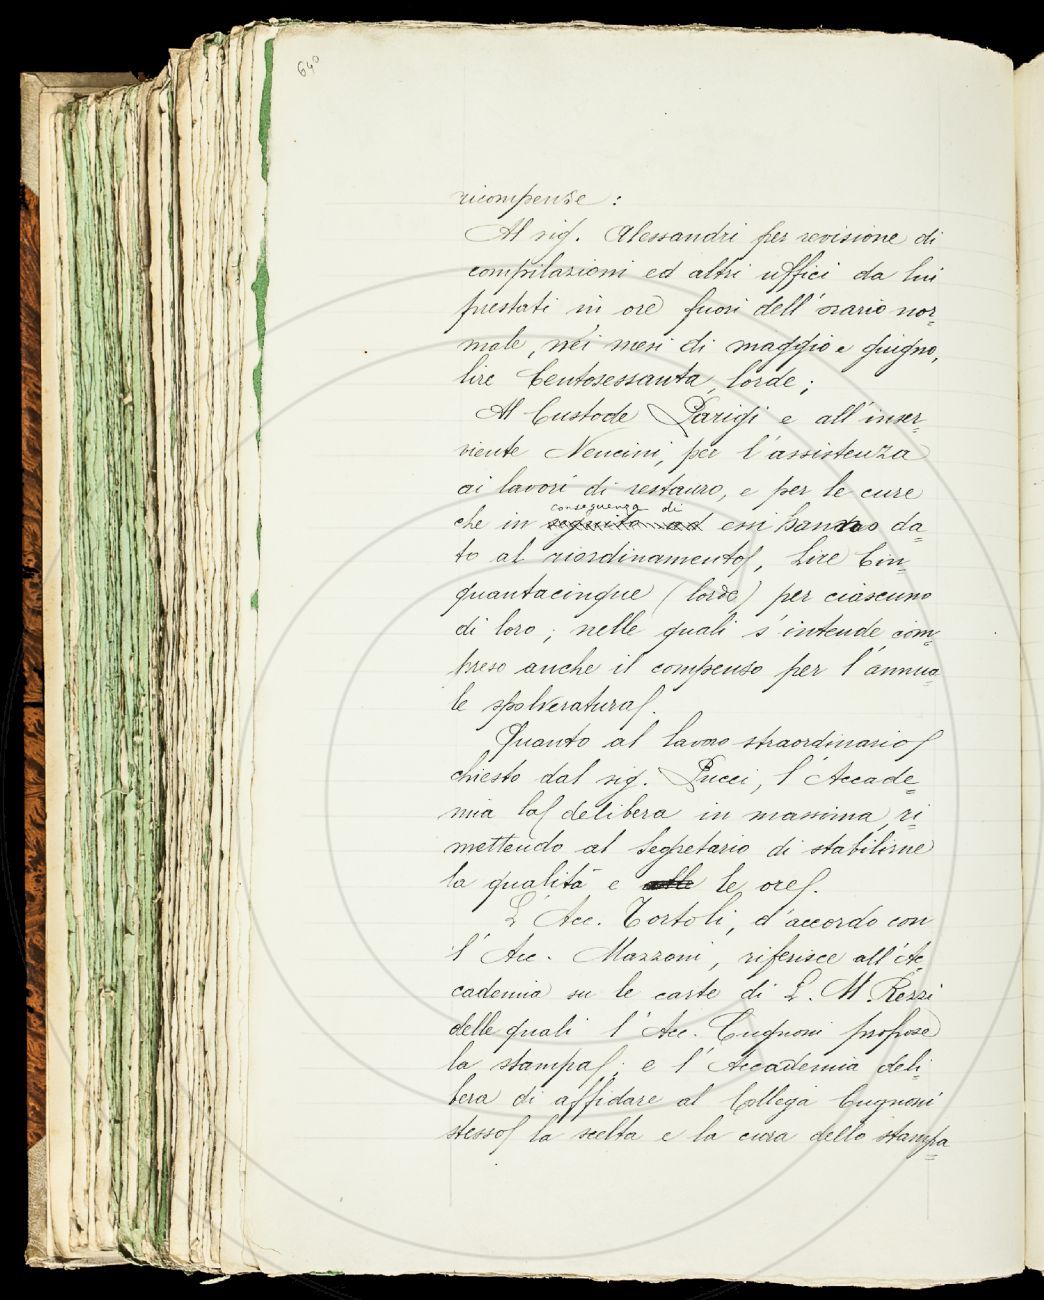 640
ricompense :
Al sig. Alessandri per revisione di
compilazioni ed altri uffici da lui
prestati in ore fuori dell'orario nor=
male, nei mesi di maggio e giugno,
lire Centosessanta, lorde ;
Al Custode Parigi e all'inser=
viente Nencini, per l'assistenza
ai lavori di restauro, e per le cure
conseguenza di
che in seguito ad essi hanno da=
to al riordinamento, Lire Cin=
quantacinque (lorde) per ciascuno
di loro ; nelle quali s'intende com=
preso anche il compenso per l'annua=
le spolveratura.
Quanto al lavoro straordinario
chiesto dal sig. Pucci, l'Accade=
mia lo delibera in massima, ri=
mettendo al Segretario di stabilirne
la qualità e le ore.
L'Acc. Tortoli, d'accordo con
l'Acc. Mazzoni, riferisce all'Ac=
cademia su le carte di L. M. Rezzi
delle quali l'Acc. Cugnoni propose
la stampa ; e l'Accademia deli=
bera di affidare al Collega Cugnoni
stesso la scelta e la cura dello stampa=